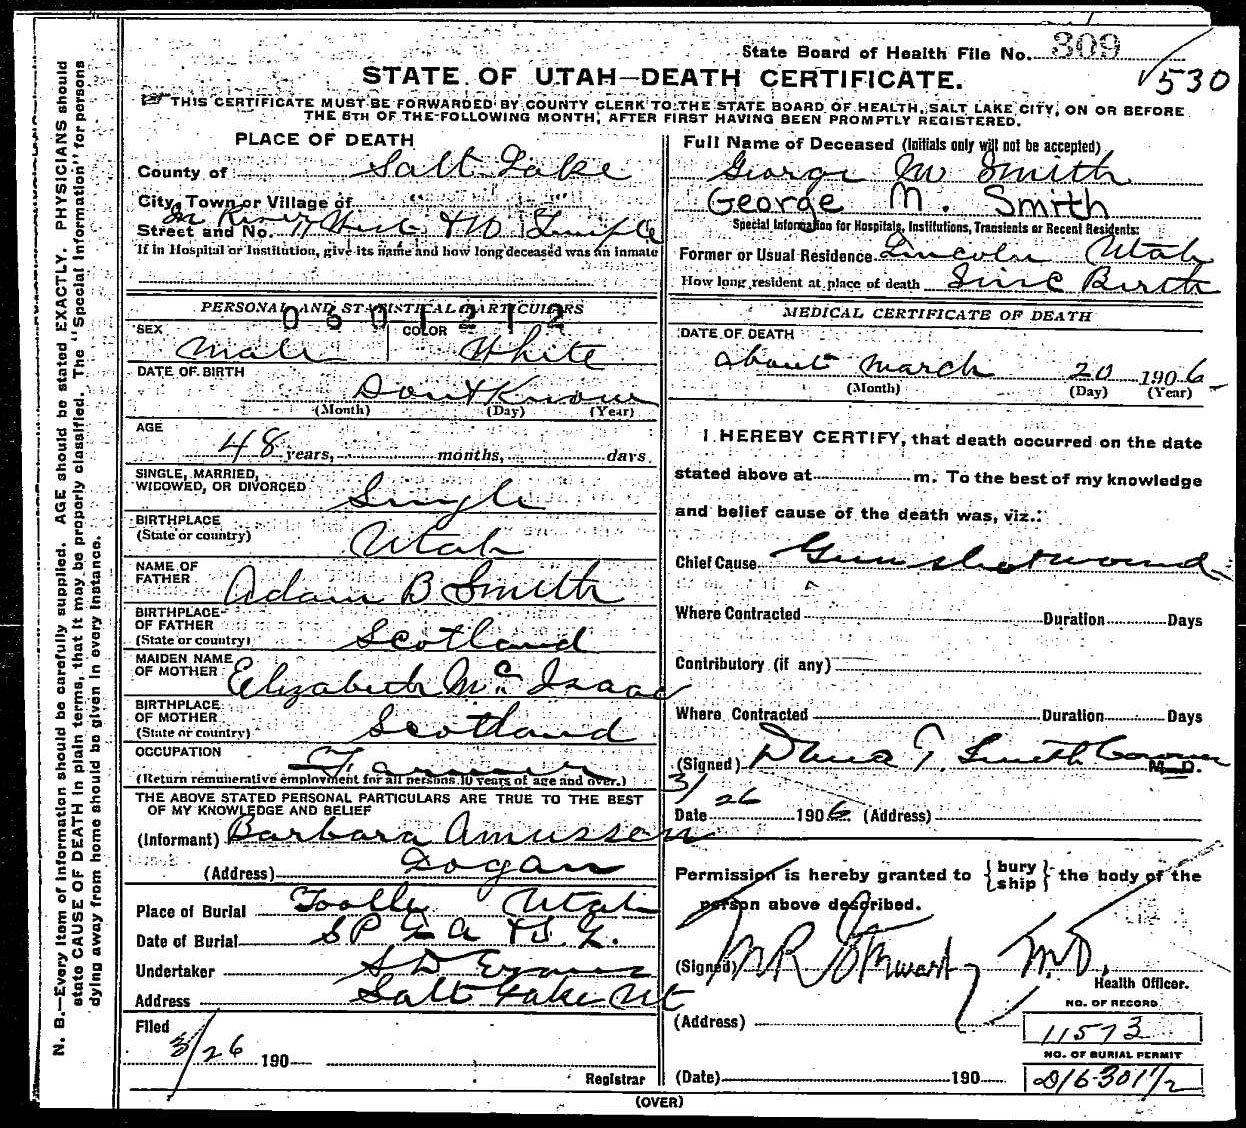 State Board of Health File No. 309
530
STATE OF UTAH—DEATH CERTIFICATE.
THIS CERTIFICATE MUST BE FORWARDED BY COUNTY CLERK TO THE STATE BOARD OF HEALTH, SALT LAKE CITY, ON OR BEFORE
THE 5TH OF THE FOLLOWING MONTH, AFTER FIRST HAVING BEEN PROMPTLY REGISTERED.
N. B.—Every item of information should be carefully supplied. AGE should be stated EXACTLY. PHYSICIANS should
state CAUSE OF DEATH in plain terms, that it may be properly classified. The "Special Information" for persons
dying away from home should be given in every instance.
PLACE OF DEATH
County of Salt Lake
City, Town or Village of " "
Street and No. In River & W Temple
If in Hospital or Institution, give its name and how long deceased was an inmate
PERSONAL AND STATISTICAL PARTICULARS
0601212
SEX Male COLOR White
DATE OF BIRTH Dont Know
(Month) (Day) (Year)
AGE 48 years, months, days
SINGLE, MARRIED,
WIDOWED, OR DIVORCED Single
BIRTHPLACE
(State or country) Utah
NAME OF
FATHER Adam B Smith
BIRTHPLACE
OF FATHER
(State or country) Scotland
MAIDEN NAME
OF MOTHER Elizabeth Mc Isaac
BIRTHPLACE
OF MOTHER
(State or country) Scotland
OCCUPATION Farmer
(Return remunerative employment for all persons 10 years of age and over.)
THE ABOVE STATED PERSONAL PARTICULARS ARE TRUE TO THE BEST
OF MY KNOWLEDGE AND BELIEF
(Informant) Barbara Amussen
(Address) Logan
Place of Burial Tooele Utah
Date of Burial S P L A & S. L.
Undertaker S D Evans
Address Salt Lake Ut
Filed
3/26 190
Registrar
Full Name of Deceased (Initials only will not be accepted)
George M Smith
George M. Smith
Special Information for Hospitals, Institutions, Transients or Recent Residents:
Former or Usual Residence Lincoln Utah
How long resident at place of death Since Birth
MEDICAL CERTIFICATE OF DEATH
DATE OF DEATH
about March 20 1906
(Month) (Day) (Year)
I HEREBY CERTIFY, that death occurred on the date
stated above at m. To the best of my knowledge
and belief cause of the death was, viz.:
Chief Cause Gun shot wound
Where Contracted Duration Days
Contributory (if any)
Where Contracted Duration Days
(Signed) Dana T Smith Coroner M. D.
3/26
Date 1906 (Address)
Permission is hereby granted to {bury ship} the body of the
person above described.
(Signed) M R Stewart M.D.
Health Officer.
(Address)
NO. OF RECORD
11573
NO. OF BURIAL PERMIT
D16-301 1/2
(Date) 190
(OVER)